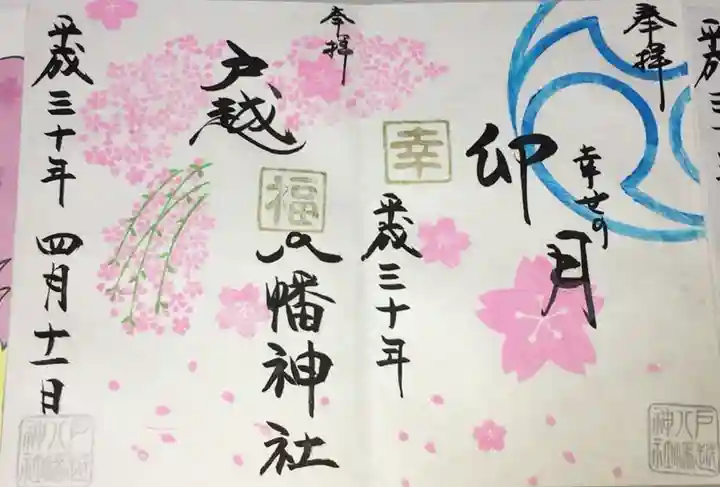 平成三
奉拝
幸せの
卯月
幸
平成三十年
奉拝
戸越
福
八幡神社
平成三十年 四月十一日
戸越八幡神社
戸越八幡神社